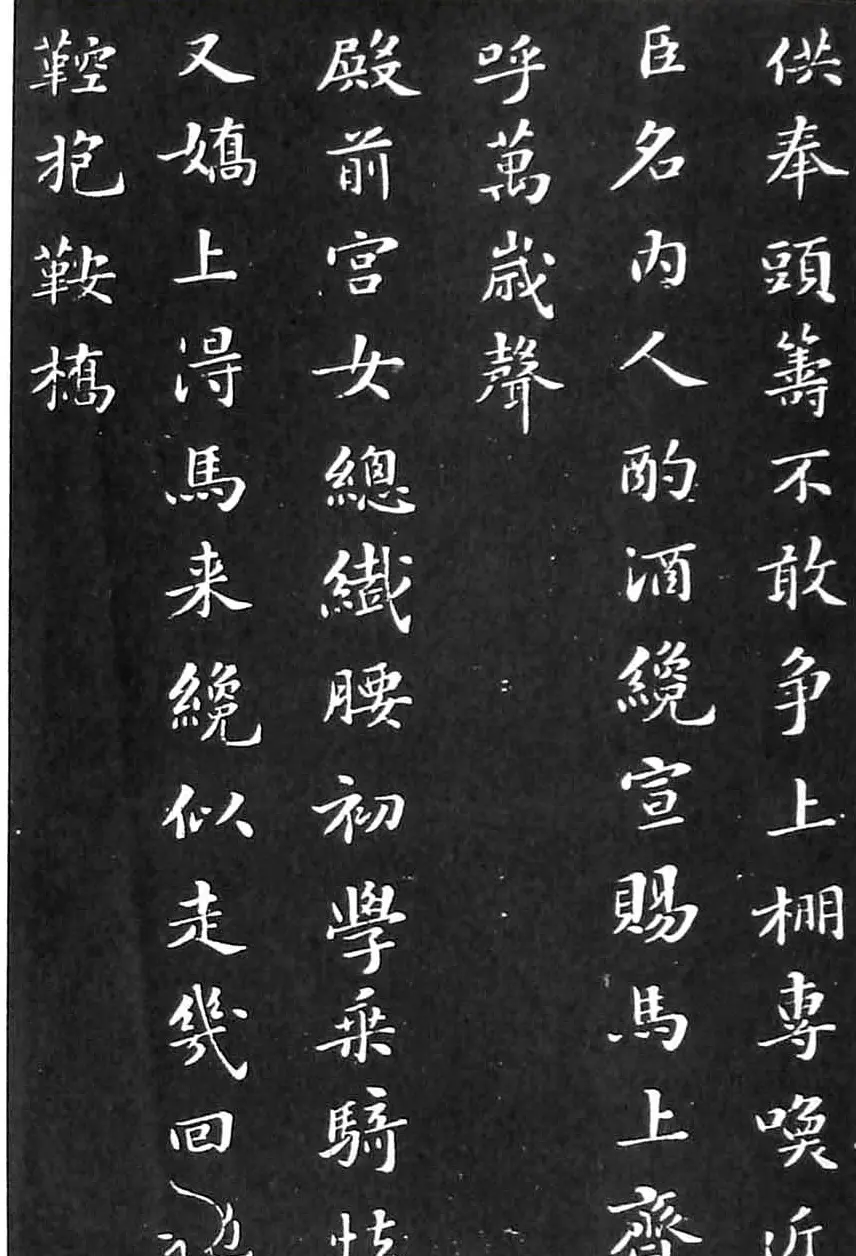 供奉頭籌不敢争上棚專喚近
臣名内人酌酒纔宣賜馬上齊
呼萬歲聲
殿前宫女總纖腰初學乗騎怯
又嬌上得馬来纔似走幾回
鞚抱鞍橋